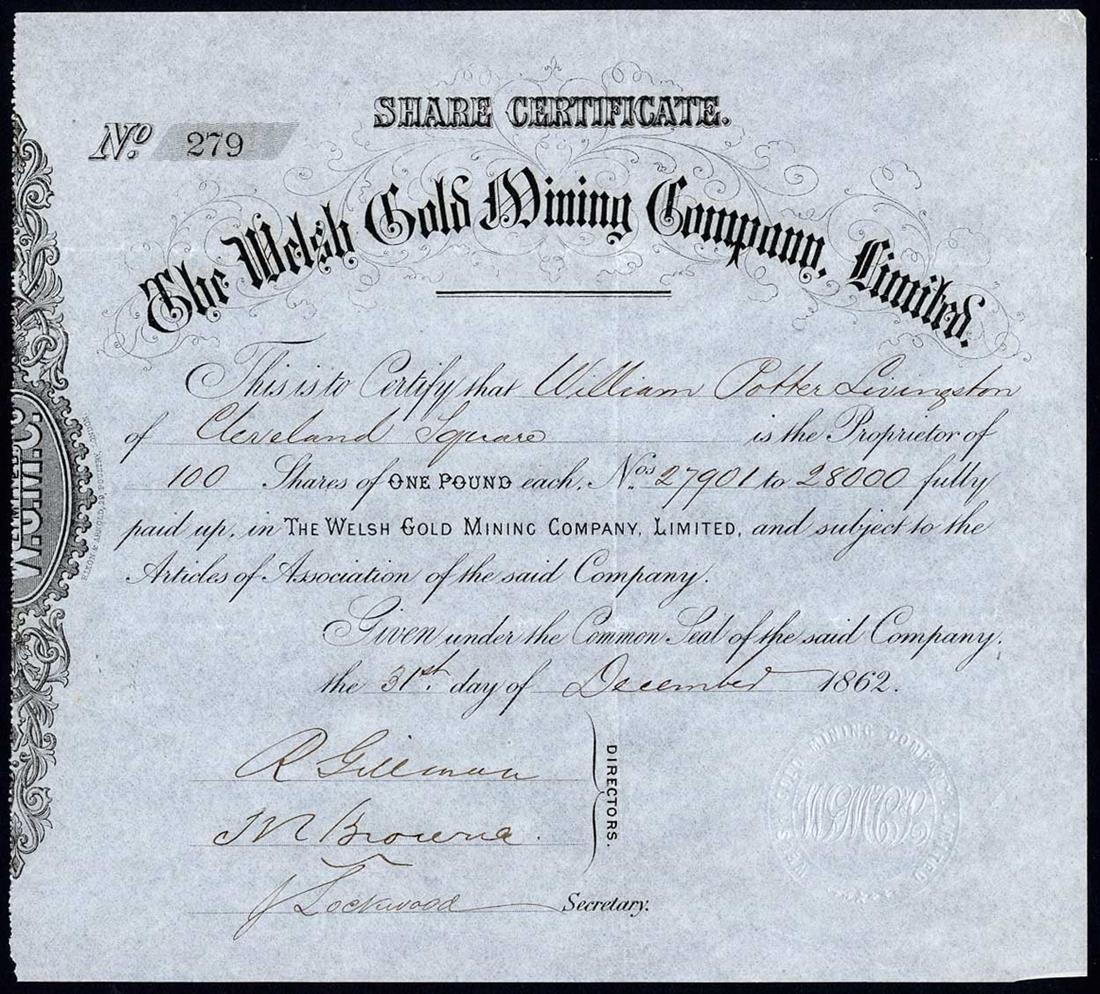 SHARE CERTIFICATE.
No. 279
The Welsh Gold Mining Company, Limited.
This is to Certify that William Potter Livingston
of Cleveland Square is the Proprietor of
100 Shares of ONE POUND each, Nos. 27901 to 28000 fully
paid up, in THE WELSH GOLD MINING COMPANY, LIMITED, and subject to the
Articles of Association of the said Company.
Given under the Common Seal of the said Company,
the 31st. day of December 1862.
R Gillman
J N Browne.
DIRECTORS.
J Lockwood Secretary.
W.G.M.C.
NIXON & ARNOLD,
WELSH GOLD MINING COMPANY LIMITED
WGMCL